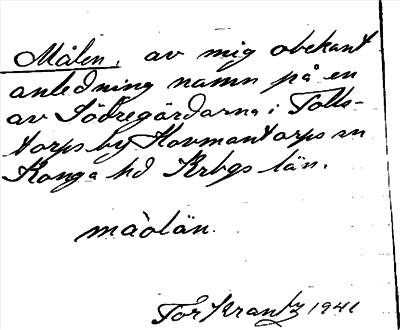 Målen, av mig obekant
anledning namn på en
av Södregårdarna i Tolls-
torps by Hovmantorps sn
Konga hd Krbgs län.
màolän.
Tor Krantz 1941